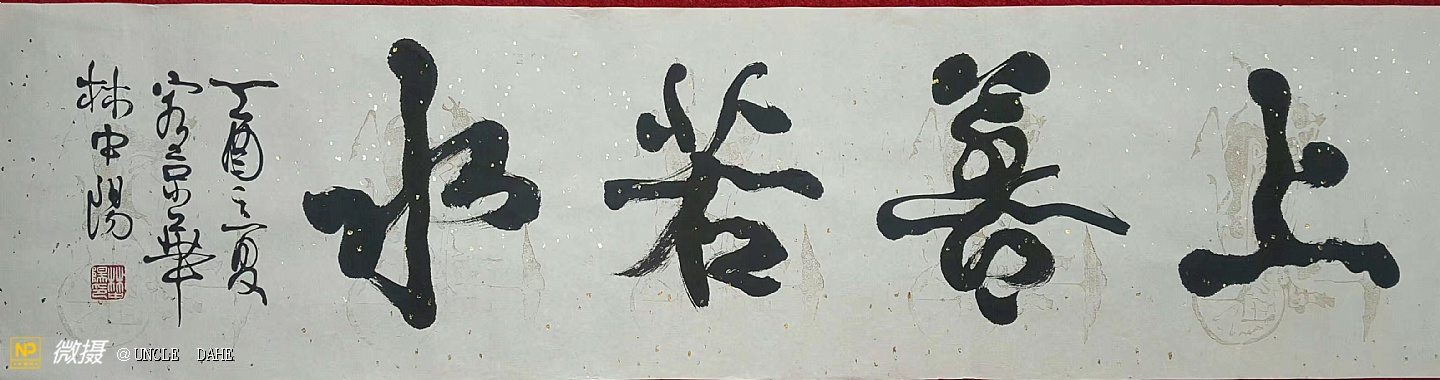 上善若水
丁酉之夏
客京華
林中陽
NP 微摄 @UNCLE DAHE